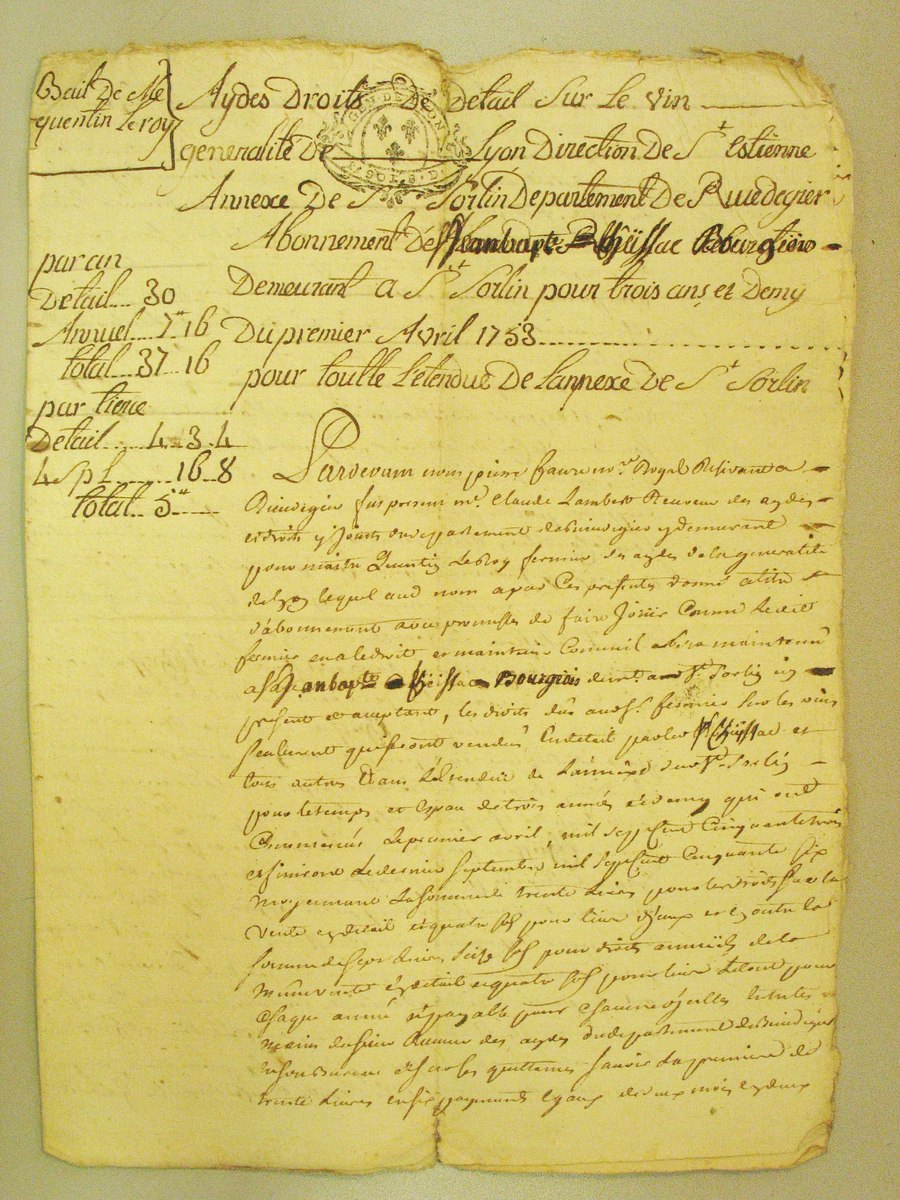 Bail De Me
quentin Leroy
par an
Detail.... 30
Annuel.. 7tt 16
total.. 37.. 16
par tierce
Detail.... 4.. 3.. 4
4 s p L...... 16.. 8
total.. 5tt......
Aydes Droits De Detail Sur Le vin
generalité De Lyon Direction De St Estienne
Annexe De St Sorlin Departement De Rivedegier
Abonnement De Jean bapte Bourgeois
Demeurant a St Sorlin pour trois ans et Demy
Du premier Avril 1753
pour toutte L'etendue De L'annexe De St Sorlin
Pardevant nous pierre faure nore Royal Reservé a
Rivedegier fut present mr. Claude Lambert Receveur des aydes
et droits y Joints du departement de Rivedegier y demeurant
pour maitre Quentin LeRoy fermier des aydes de la generalité
de Lyon lequel aud nom a par Ces presentes donné a titre
d'abonnement avec promesse de faire Jouir Comme ledit
fermier en a le droit et maintenir
Jean bapte Bourgeois demt a St Sorlin icy
present et acceptant, les droits dûs aud Sr. fermier sur les vins
seulement qui seront vendus En detail par led et
tous autres Dans L'étendue de L'annexe dud St Sorlin
pour le temps et Espace de trois années et demy qui ont
Commencés Le premier avril, mil sept cent Cinquante trois
et finiront Le dernier septembre mil sept cent Cinquante six
moyennant La somme de trente Livres pour les droits sur la
vente en detail et quatre sols pour livre d'yceux et en outre la
somme de sept Livres seize sols pour droits annuels de la
meme vente en detail et quatre sols pour livre Le tout pour
chaque année et payable pour chacune d'ycelles Entre les
mains du sieur Receveur des aydes du departement de Rivedegier
en son Bureau et sur ses quittances savoir La premiere de
trente Livres en six payements egaux de deux mois en deux